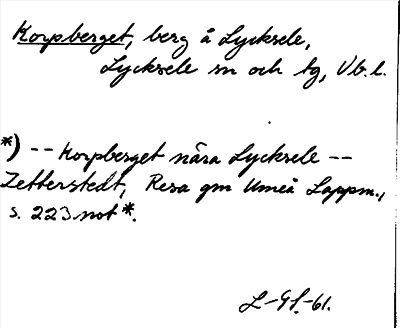 Korpberget, berg å Lycksele,
Lycksele sn och tg, Vb. l.
*) -- Korpberget nära Lycksele --
Zetterstedt, Resa gm Umeå Lappm.,
s. 223 not *.
-61.